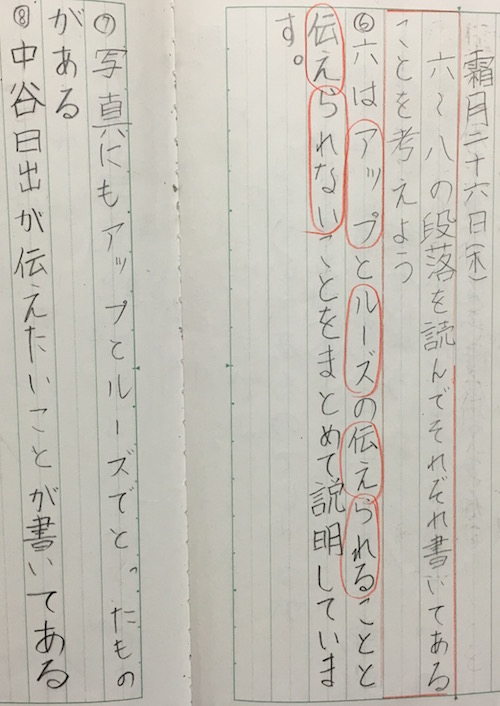 霜月二十六日(木)
六〜八の段落を読んでそれぞれ書いてある
ことを考えよう
⑥六はアップとルーズの伝えられることと
伝えられないことをまとめて説明していま
す。
⑦写真にもアップとルーズでとったもの
がある
⑧中谷日出が伝えたいことが書いてある